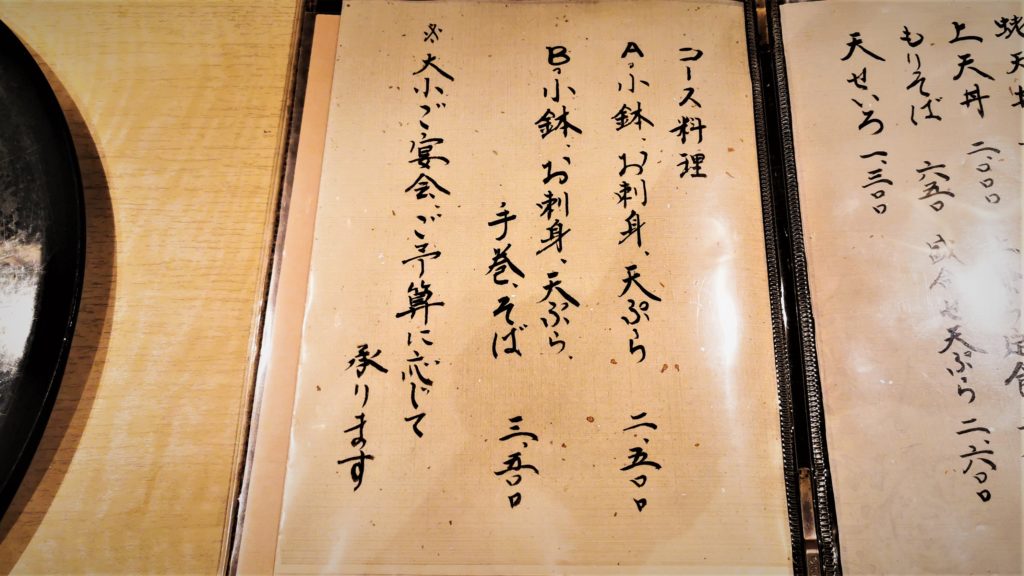 上天丼 二〇〇〇
もりそば 六五〇
盛合せ天ぷら 二、六〇〇
天せいろ 一、三〇〇
コース料理
A、小鉢、お刺身、天ぷら 二、五〇〇
B、小鉢、お刺身、天ぷら、
手巻、そば 三、五〇〇
※大小ご宴会、ご予算に応じて
承ります